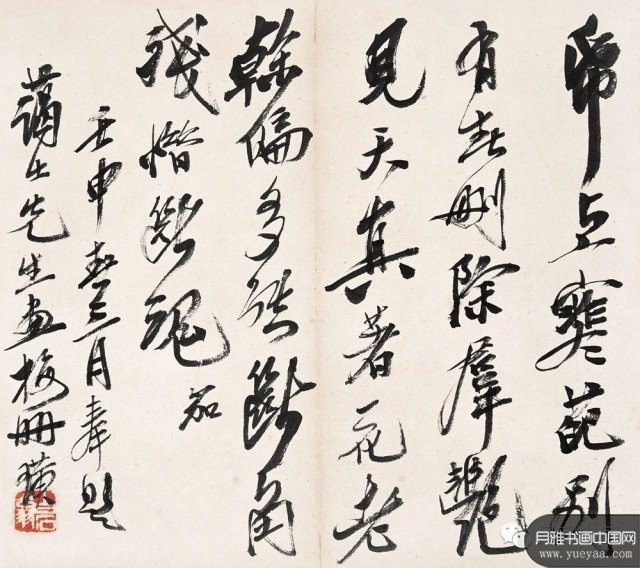 帋上寒葩別
有春刪除羣艷
見天真著花老
榦偏多斷角
殘惜斷魂
笳
壬申春三月奉題
藹士先生畫梅冊璜
月雅书画中国网
www.yueyaa.com